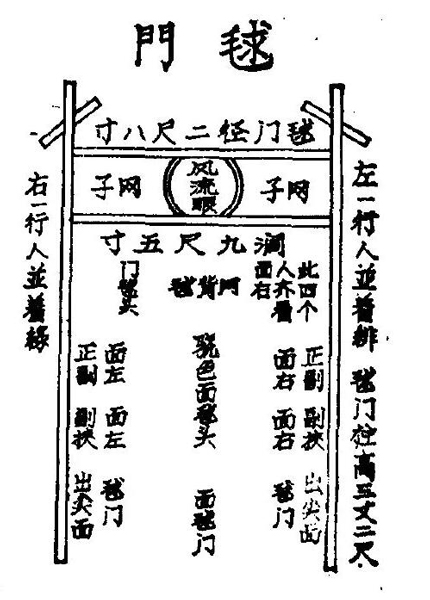 毬門
毬门径二尺八寸
网子
风流眼
网子
濶九尺五寸
左一行人並着緋
毬门柱高三丈二尺
此四个
人齐着
面右
正副 副挾 出尖面
面右 面右 毬门
骁色面毬头 面毬门
门毬头
面左 面左 毬门
正副 副挾 出尖面
右一行人並着綠